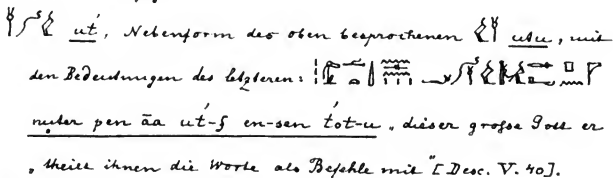 ut́, Nebenform des oben besprochenen utu, mit
den Bedeutungen des letzteren:
nuter pen āa ut́-f en-sen t́ot-u „dieser große Gott er
„theilt ihnen die Worte als Befehle mit" [Desc. V. 40].